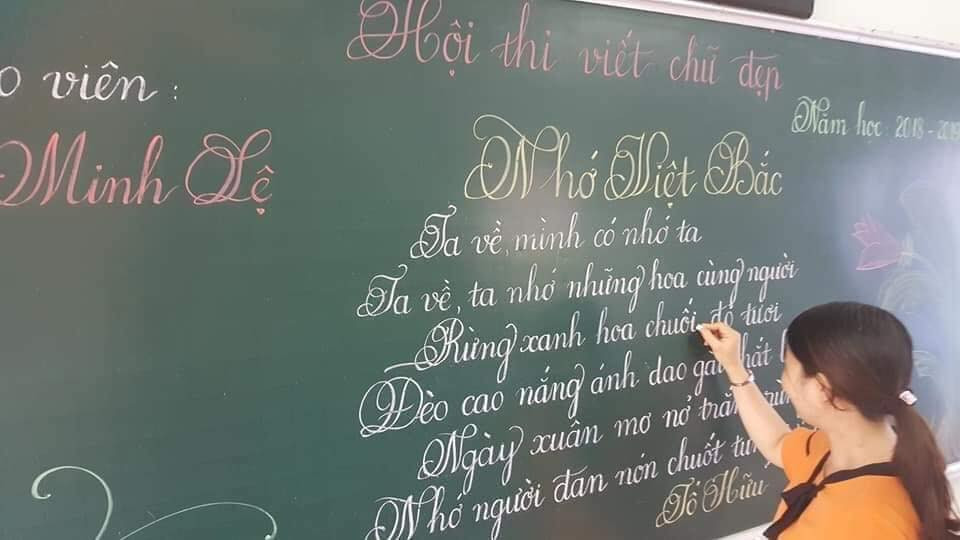 Hội thi viết chữ đẹp
viên :
Minh Lệ
Năm học : 2018 - 2019
Nhớ Việt Bắc
Ta về, mình có nhớ ta
Ta về, ta nhớ những hoa cùng người
Rừng xanh hoa chuối đỏ tươi
Đèo cao nắng ánh dao
Ngày xuân mơ nở
Nhớ người đan nón chuốt
Tố Hữu